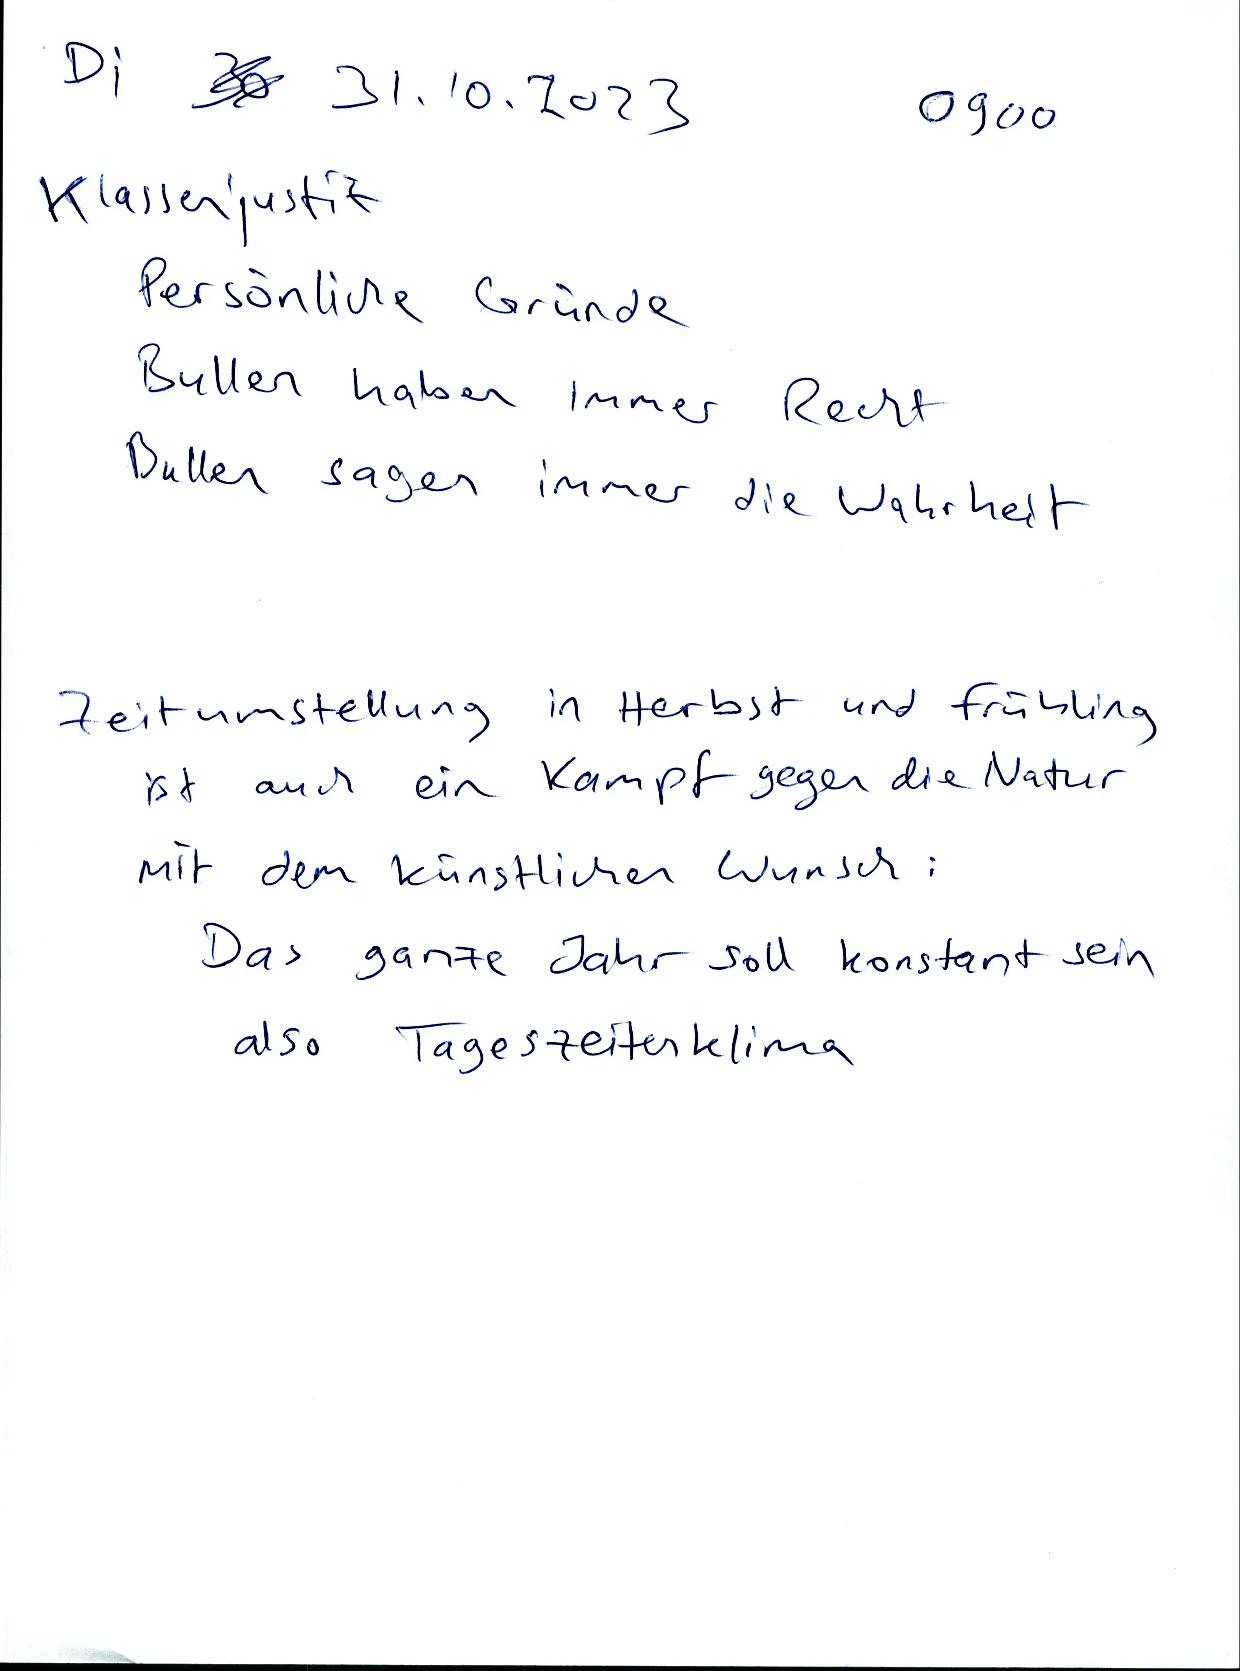 Di 31.10.2023 0900
Klassenjustiz
Persönliche Gründe
Bullen haben immer Recht
Bullen sagen immer die Wahrheit
Zeitumstellung in Herbst und Frühling
ist auch ein Kampf gegen die Natur
mit dem künstlichen Wunsch:
Das ganze Jahr soll konstant sein
also Tageszeitenklima